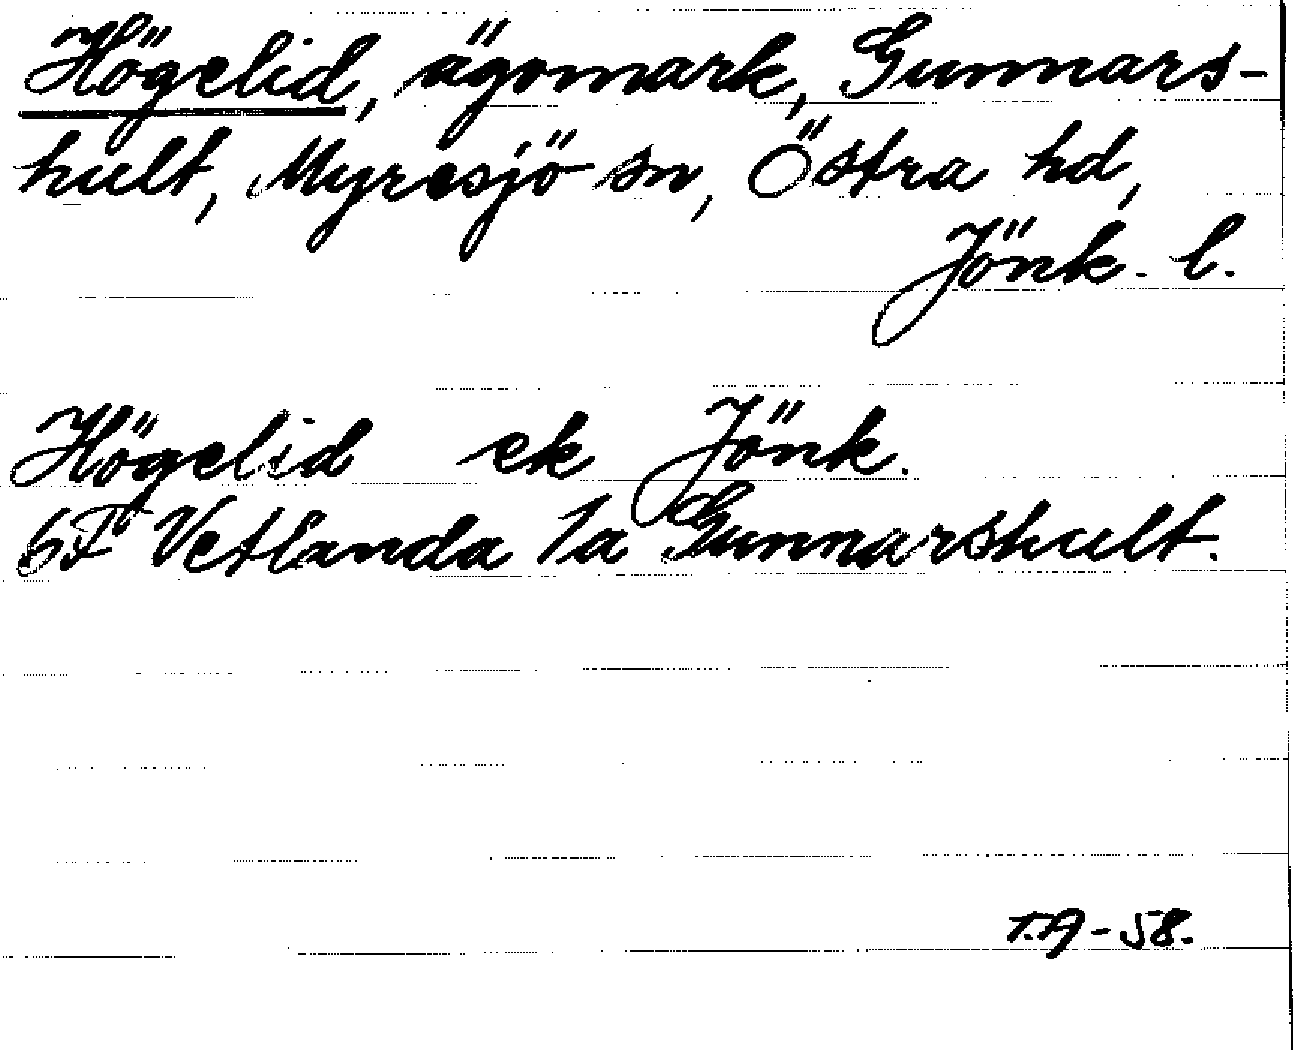 Högelid, ägomark, Gunnars-
hult, Myresjö sn, Östra hd,
Jönk. l.
Högelid ek Jönk.
6F Vetlanda 1a Gunnarshult.
T.A-58.